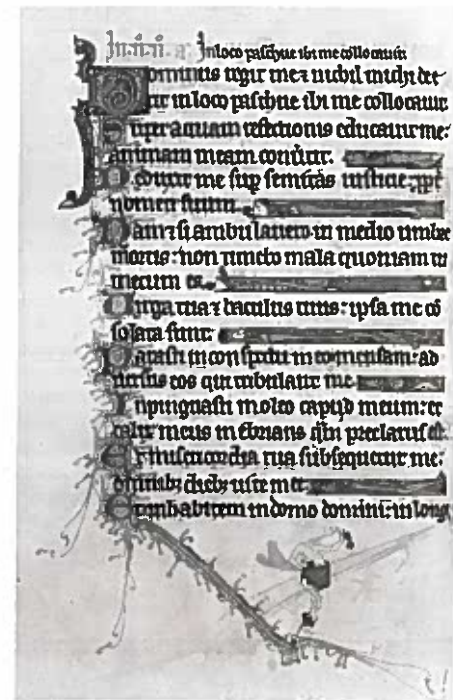 In loco paschue ibi me collocauit
Dominus regit me ⁊ nichil michi dee
rit in loco paschue ibi me collocauit
Super aquam refectionis educauit me:
animam meam conuertit.
Deduxit me sup semitas iusticie: ppt
nomen suum
Nam ⁊ si ambulauero in medio umbre
mortis: non timebo mala quoniam tu
mecum es.
Virga tua ⁊ baculus tuus: ipsa me co
solata sunt:
Parasti in conspectu meo mensam: ad
uersus eos qui tribulant me.
Inpinguasti in oleo caput meum: et
calix meus inebrians qm preclarus est
Et misericordia tua subsequetur me:
omnibz diebz uite mee.
Et inhabitem in domo domini: in long